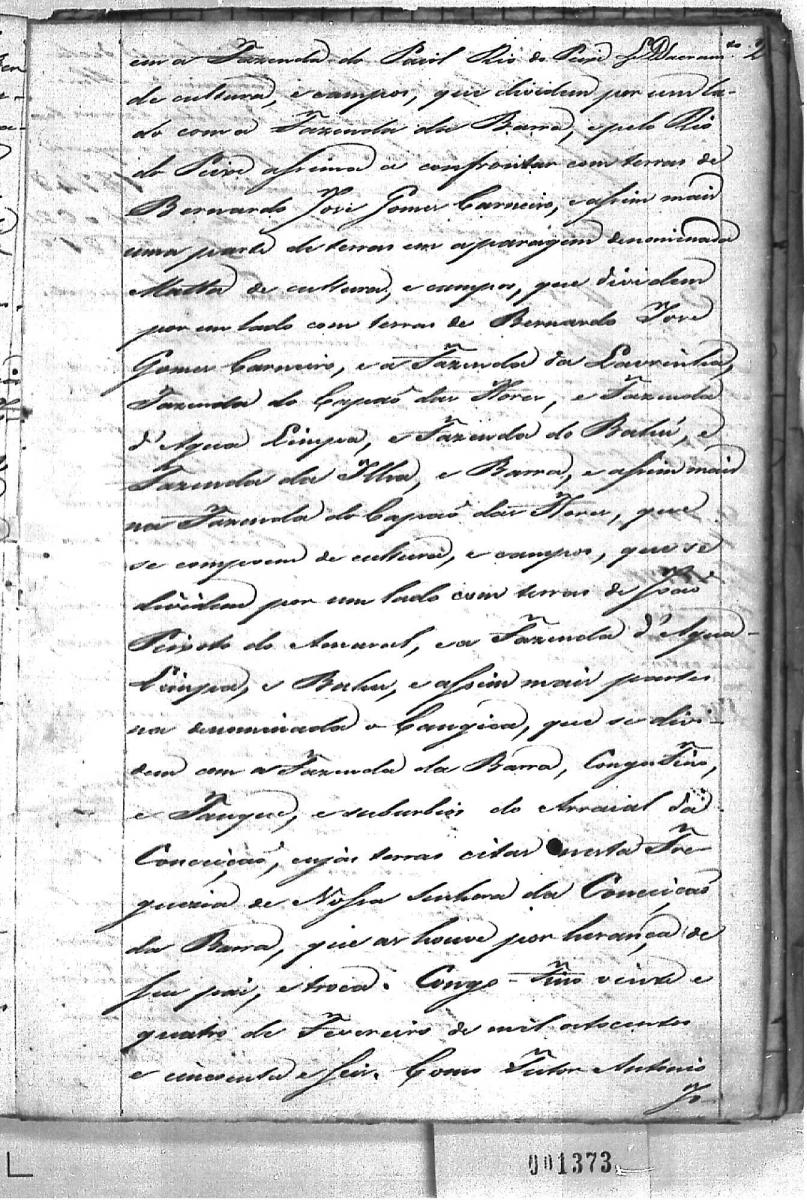 em a Fazenda do Paiol Rio do Peixe
de cultura, e campos, que dividem por um la-
do com a Fazenda da Barra, e pelo Rio
do Peixe assima a confrontar com terras de
Bernardo Jose Gomes Carneiro, e assim mais
uma parte de terras em a paragem denominada
Matta de cultura, e campos, que dividem
por um lado com terras de Bernardo Jose
Gomes Carneiro, e a Fazenda da Lavrinha,
Fazenda do Capaõ das Flores, e Fazenda
d'Agua Limpa, e Fazenda do Bahú, e
Fazenda da Ilha, e Barra, e assim mais
na Fazenda do Capaõ das Flores, que
se compoem de cultura, e campos, que se
dividem por um lado com terras de Joaõ
Peixoto do Amaral, e a Fazenda d'Agua-
Limpa, e Bahu, e assim mais partes
na denominada o Cangica, que se divi-
dem com a Fazenda da Barra, Congo Fino,
e Tanque, e suburbios do Arraial da
Conceiçaõ, cujas terras citas nesta Fre-
guezia de Nossa Senhora da Conceiçaõ
da Barra, que as houve por herança de
seu pai, e troca. Congo-Fino vinte e
quatro de Fevereiro de mil oitocentos
e cincoenta e seis. Como Tutor Antonio
Jo
001373